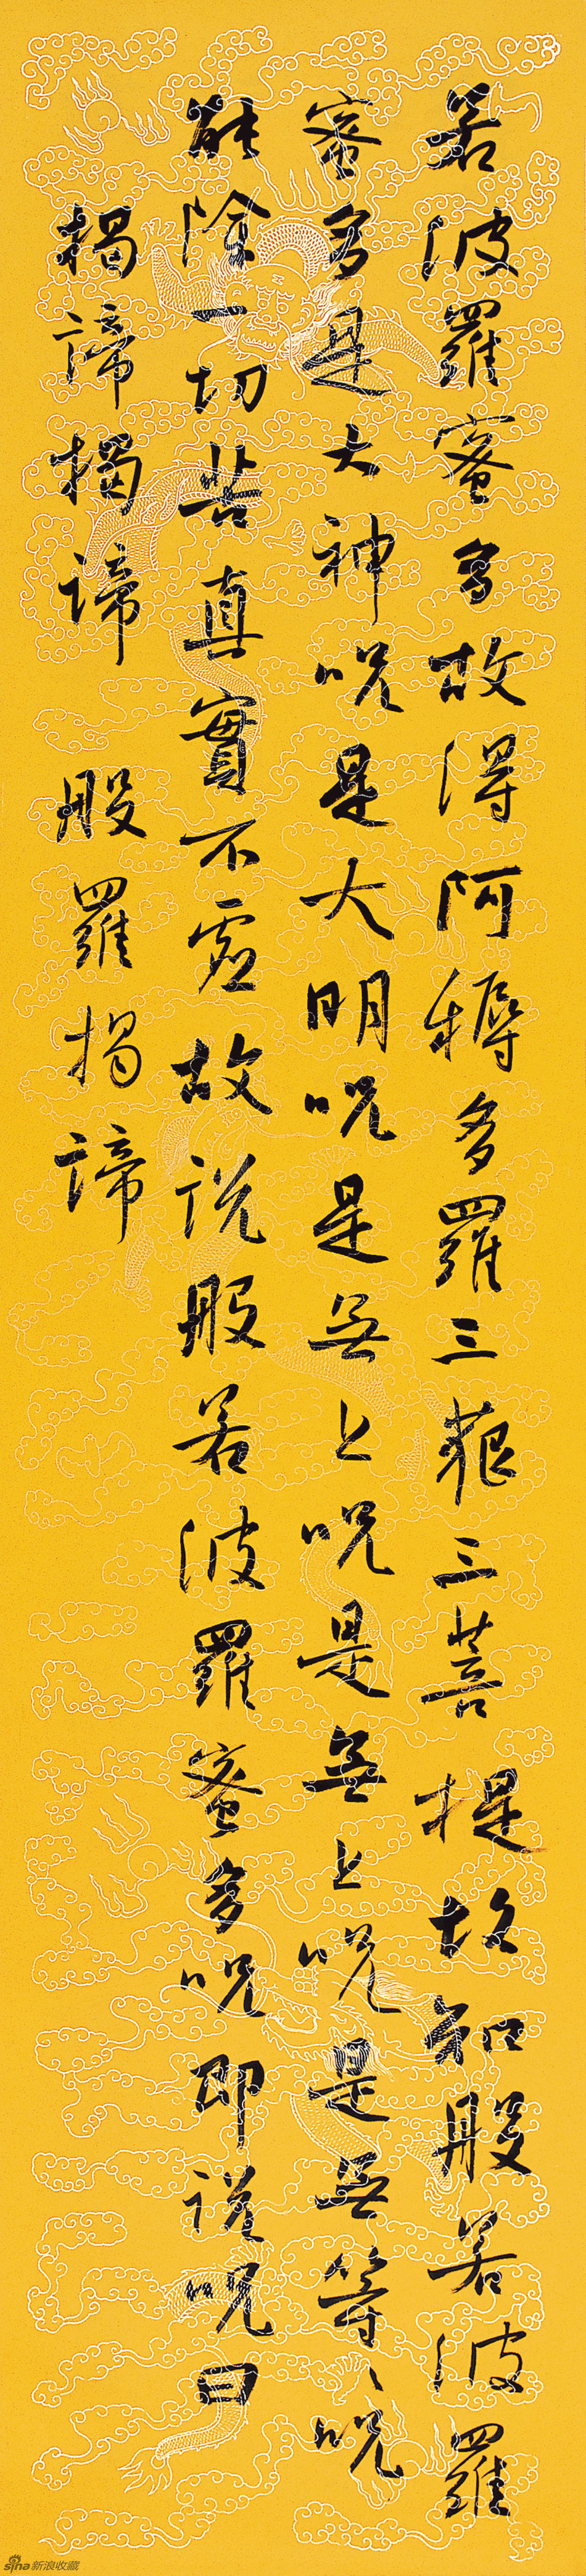 若波羅蜜多故得阿耨多羅三藐三菩提故知般若波羅
蜜多是大神呪是大明呪是無上呪是無上呪是無等、呪
能除一切苦真實不虛故說般若波羅蜜多呪即說呪曰
揭諦揭諦 般羅揭諦
sina新浪收藏